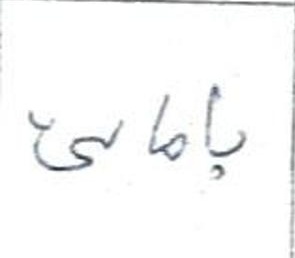 باماسئ